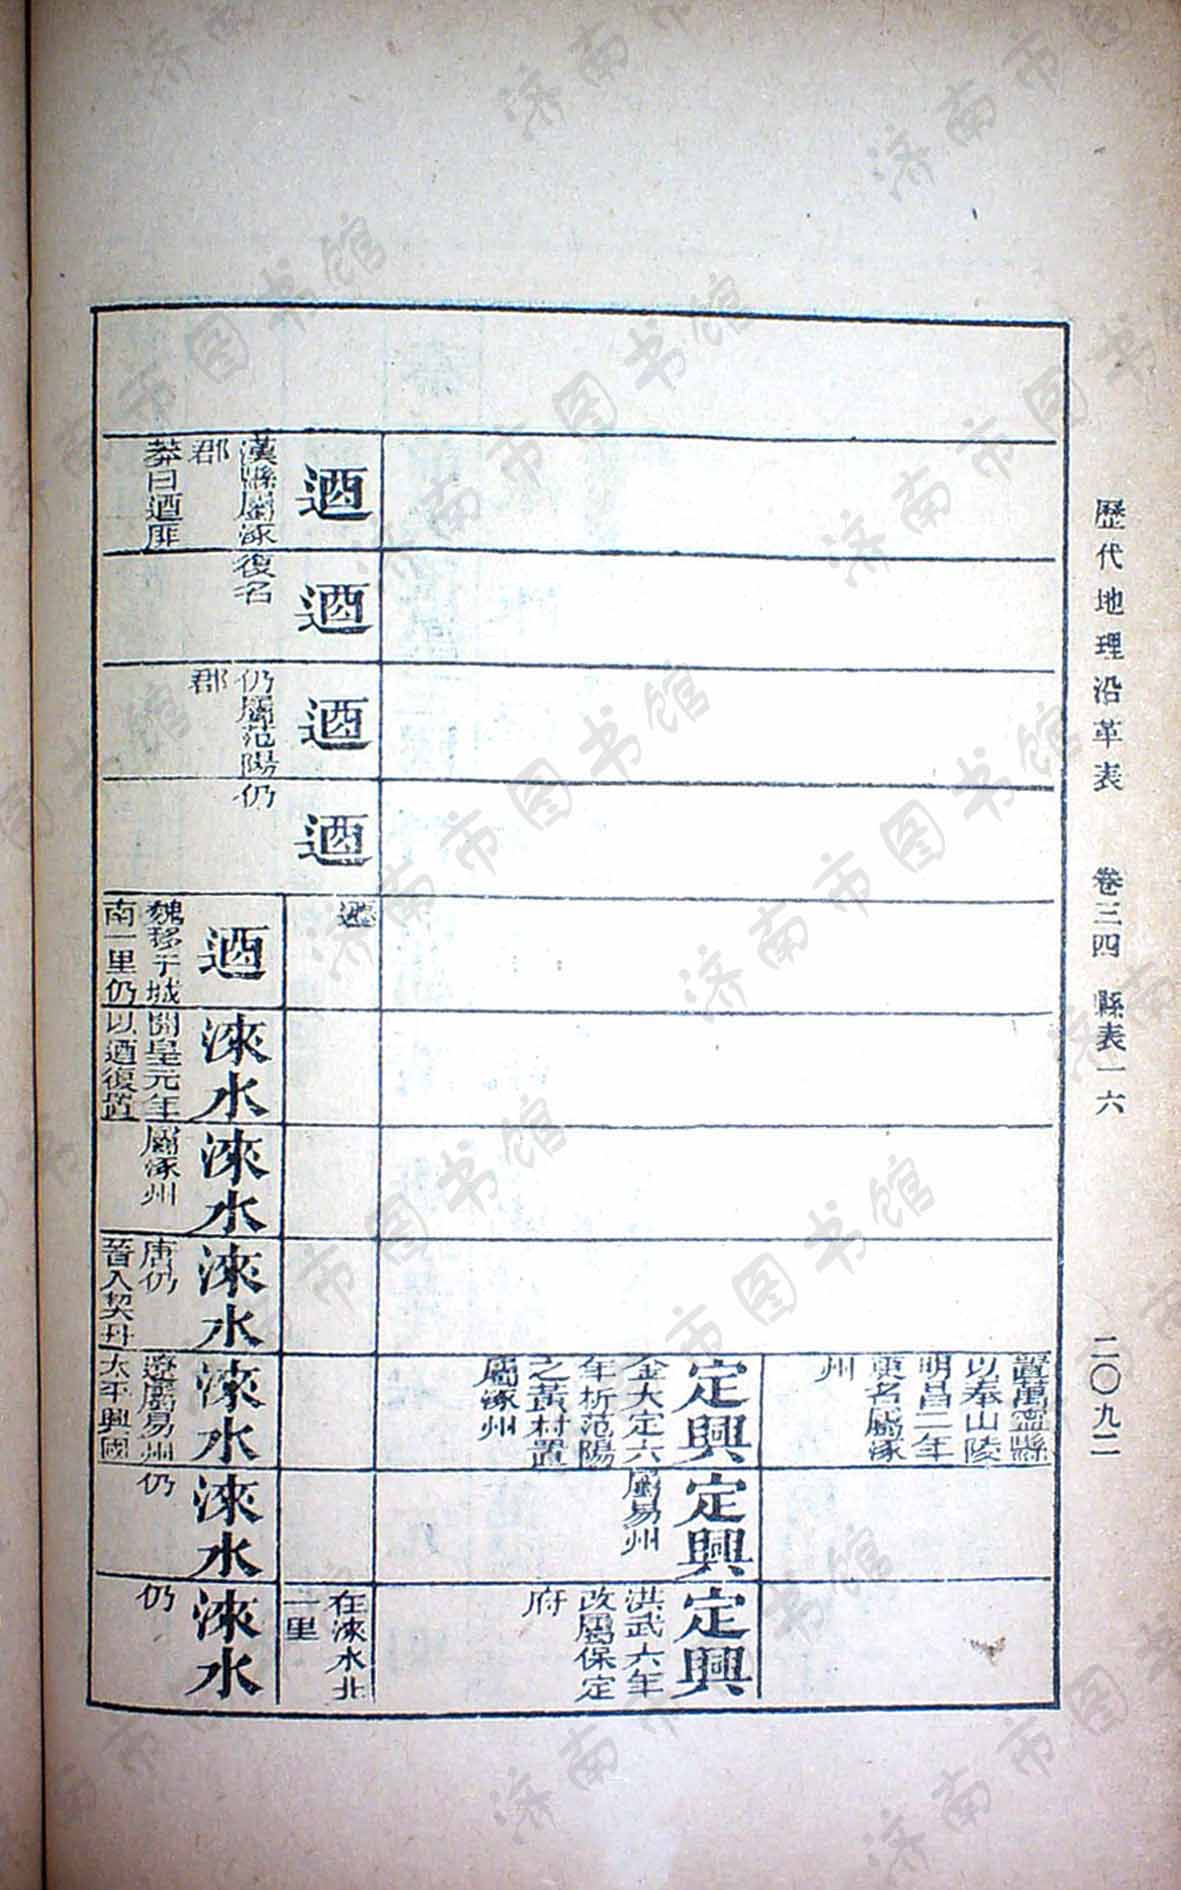 歷代地理沿革表 卷三四 縣表一六 二〇九二
置萬寧縣
以奉山陵
明昌二年
更名屬涿
州
定興
金大定六
年析范陽
之黃村置
屬涿州
定興
屬易州
定興
洪武六年
改屬保定
府
迺
在淶水北
一里
迺
漢縣屬涿
郡
莽曰迺屏
迺
復名
迺
仍屬范陽
郡
迺
仍
迺
魏移于城
南一里仍
淶水
開皇元年
以迺復置
淶水
屬涿州
淶水
唐仍
晉入契丹
淶水
遼屬易州
太平興國
淶水
仍
淶水
仍
济南市图书馆